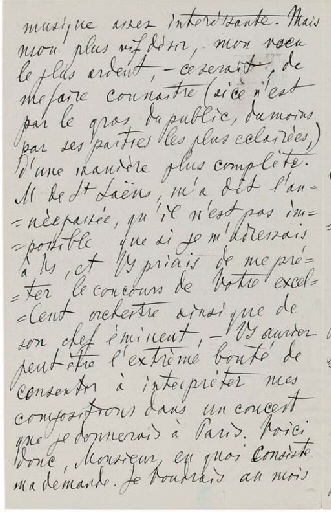 musique assez intéressante. Mais
mon plus vif désir, mon vœu
le plus ardent, – ce serait, de
me faire connaître (si ce n'est
par le gros du public, du moins
par ses parties les plus éclairées,)
d'une manière plus complète.
M de St Saëns, m'a dit l'an-
=née passée, qu'il n'est pas im-
=possible que si je m'adressais
à Vs, et Vs priais de me prê-
=ter le concours de Votre excel-
=lent orchestre ainsi que de
son chef éminent, – Vs auriez
peut être l'extrême bonté de
consentir à interpréter mes
compositions dans un concert
que je donnerais à Paris. Voici
donc, Monsieur, en quoi consiste
ma demande. Je voudrais au mois